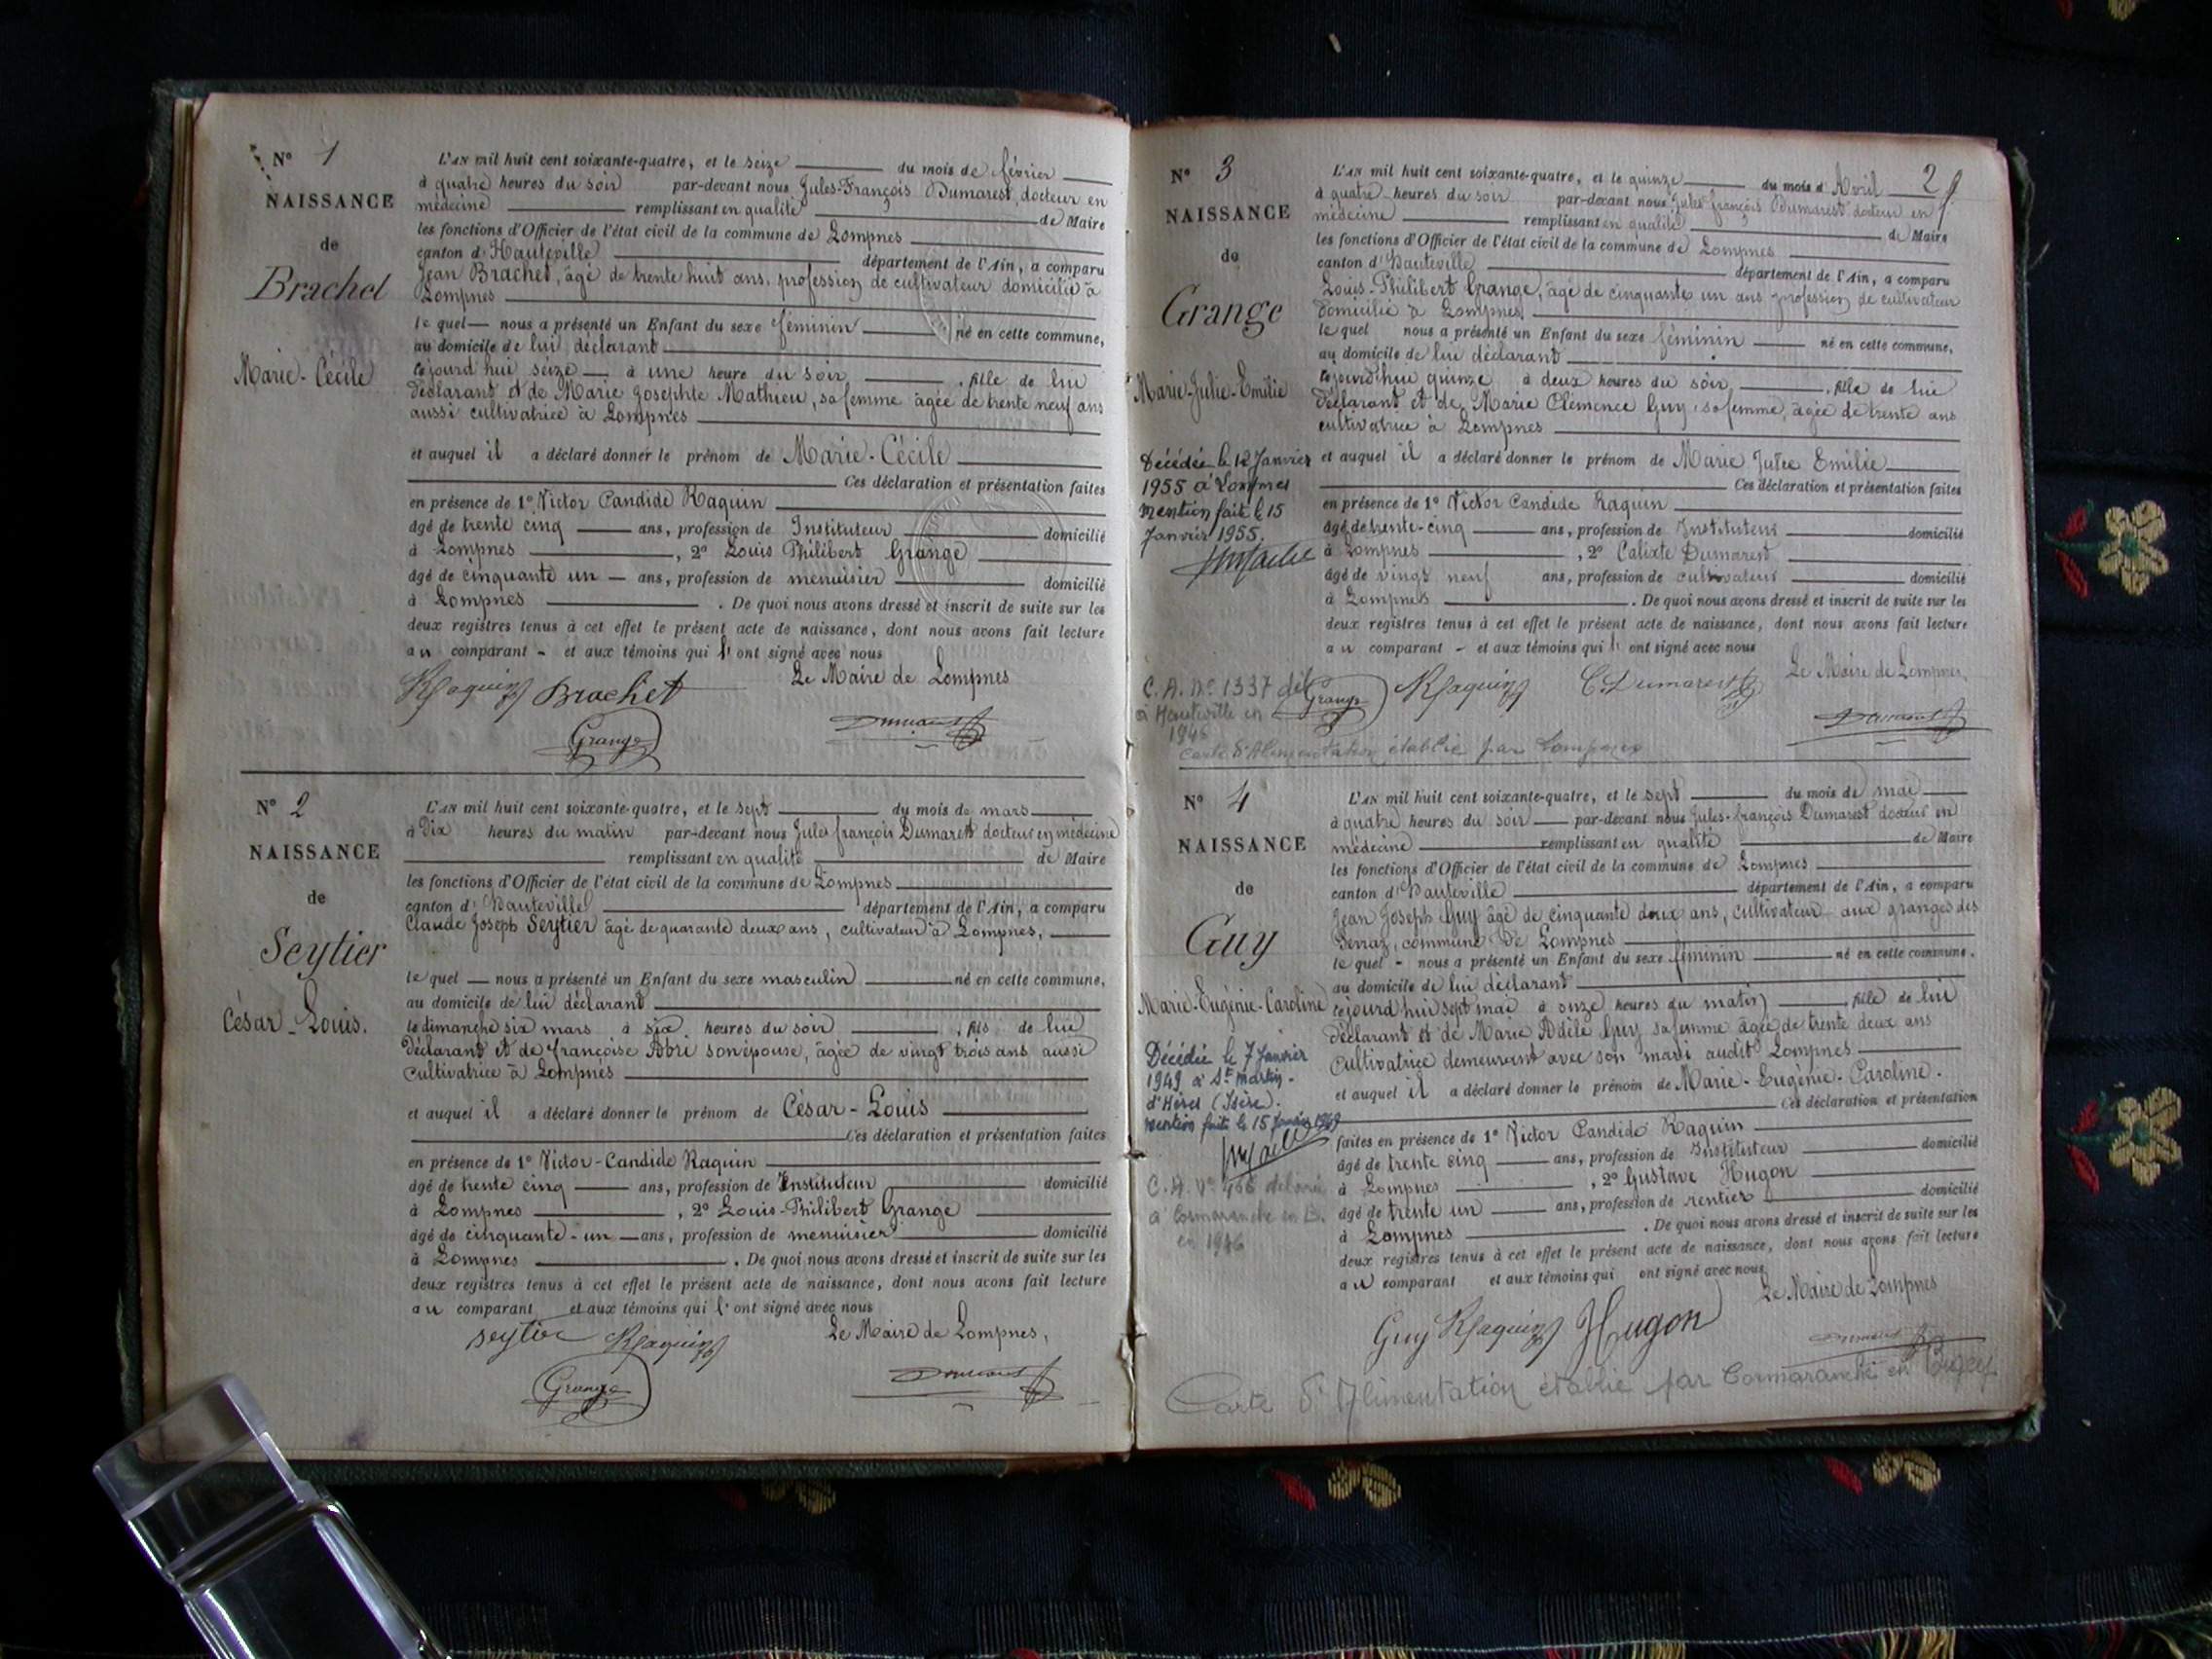 N° 1
NAISSANCE
de
Brachet
Marie-Cécile
L'AN mil huit cent soixante-quatre, et le seize du mois de février
à quatre heures du soir par-devant nous Jules-François Dumarest, docteur en
médecine remplissant en qualité de Maire
les fonctions d'Officier de l'état civil de la commune de Lompnes
canton d'Hauteville département de l'Ain, a comparu
Jean Brachet, âgé de trente huit ans, profession de cultivateur domicilié à
Lompnes
le quel nous a présenté un Enfant du sexe féminin né en cette commune,
au domicile de lui déclarant
cejourd'hui seize à une heure du soir, fille de lui
déclarant et de Marie Josephte Mathieu, sa femme âgée de trente neuf ans
aussi cultivatrice à Lompnes
et auquel il a déclaré donner le prénom de Marie-Cécile
Ces déclaration et présentation faites
en présence de 1° Victor Candide Raquin
âgé de trente cinq ans, profession de Instituteur domicilié
à Lompnes, 2° Louis Philibert Grange
âgé de cinquante un ans, profession de menuisier domicilié
à Lompnes. De quoi nous avons dressé et inscrit de suite sur les
deux registres tenus à cet effet le présent acte de naissance, dont nous avons fait lecture
au comparant et aux témoins qui l'ont signé avec nous
Le Maire de Lompnes
Raquin Brachet
Grange
Dumarest
N° 2
NAISSANCE
de
Seytier
César-Louis.
L'AN mil huit cent soixante-quatre, et le sept du mois de mars
à dix heures du matin par-devant nous Jules françois Dumarest docteur en médecine
remplissant en qualité de Maire
les fonctions d'Officier de l'état civil de la commune de Lompnes
canton d'Hauteville département de l'Ain, a comparu
Claude Joseph Seytier âgé de quarante deux ans, cultivateur à Lompnes,
le quel nous a présenté un Enfant du sexe masculin né en cette commune,
au domicile de lui déclarant
le dimanche six mars à six heures du soir, fils de lui
déclarant et de françoise Abri son épouse, âgée de vingt trois ans aussi
cultivatrice à Lompnes
et auquel il a déclaré donner le prénom de César-Louis
Ces déclaration et présentation faites
en présence de 1° Victor-Candide Raquin
âgé de trente cinq ans, profession de Instituteur domicilié
à Lompnes, 2° Louis-Philibert Grange
âgé de cinquante-un ans, profession de menuisier domicilié
à Lompnes. De quoi nous avons dressé et inscrit de suite sur les
deux registres tenus à cet effet le présent acte de naissance, dont nous avons fait lecture
au comparant et aux témoins qui l'ont signé avec nous
Le Maire de Lompnes,
seytier Raquin
Grange
Dumarest
2
N° 3
NAISSANCE
de
Grange
Marie-Julie-Emilie
Décédée le 12 Janvier
1955 à Lompnes
mention faite le 15
Janvier 1955.
L'AN mil huit cent soixante-quatre, et le quinze du mois d'Avril
à quatre heures du soir par-devant nous Jules françois Dumarest docteur en
médecine remplissant en qualité de Maire
les fonctions d'Officier de l'état civil de la commune de Lompnes
canton d'Hauteville département de l'Ain, a comparu
Louis-Philibert Grange, âgé de cinquante un ans profession de cultivateur
domicilié à Lompnes
le quel nous a présenté un Enfant du sexe féminin né en cette commune,
au domicile de lui déclarant
cejourd'hui quinze à deux heures du soir, fille de lui
déclarant et de Marie Clémence Guy, sa femme, âgée de trente ans
cultivatrice à Lompnes
et auquel il a déclaré donner le prénom de Marie Julie Emilie
Ces déclaration et présentation faites
en présence de 1° Victor Candide Raquin
âgé de trente-cinq ans, profession de Instituteur domicilié
à Lompnes, 2° Calixte Dumarest
âgé de vingt neuf ans, profession de cultivateur domicilié
à Lompnes. De quoi nous avons dressé et inscrit de suite sur les
deux registres tenus à cet effet le présent acte de naissance, dont nous avons fait lecture
au comparant et aux témoins qui l'ont signé avec nous
Le Maire de Lompnes,
Grange Raquin C. Dumarest
Dumarest
C. A. N° 1337 dél
à Hauteville en
1946
Carte d'Alimentation établie par Lompnes
N° 4
NAISSANCE
de
Guy
Marie-Eugénie-Caroline
Décédée le 7 Janvier
1949 à St Martin-
d'Hères (Isère).
mention faite le 15 Janvier 1949
C. A. N° 466 délivrée
à Cormaranche en B.
en 1946
L'AN mil huit cent soixante-quatre, et le sept du mois de mai
à quatre heures du soir par-devant nous Jules-françois Dumarest docteur en
médecine remplissant en qualité de Maire
les fonctions d'Officier de l'état civil de la commune de Lompnes
canton d'Hauteville département de l'Ain, a comparu
Jean Joseph Guy âgé de cinquante deux ans, cultivateur aux granges des
commune de Lompnes
le quel nous a présenté un Enfant du sexe féminin né en cette commune,
au domicile de lui déclarant
cejourd'hui sept mai à onze heures du matin, fille de lui
déclarant et de Marie Adèle Guy sa femme âgée de trente deux ans
cultivatrice demeurant avec son mari audit Lompnes
et auquel il a déclaré donner le prénom de Marie-Eugénie-Caroline.
Ces déclaration et présentation
faites en présence de 1° Victor Candide Raquin
âgé de trente cinq ans, profession de Instituteur domicilié
à Lompnes, 2° Gustave Hugon
âgé de trente un ans, profession de rentier domicilié
à Lompnes. De quoi nous avons dressé et inscrit de suite sur les
deux registres tenus à cet effet le présent acte de naissance, dont nous avons fait lecture
au comparant et aux témoins qui ont signé avec nous
Le Maire de Lompnes
Guy Raquin Hugon
Dumarest
Carte d'Alimentation établie par Cormaranche en Bugey